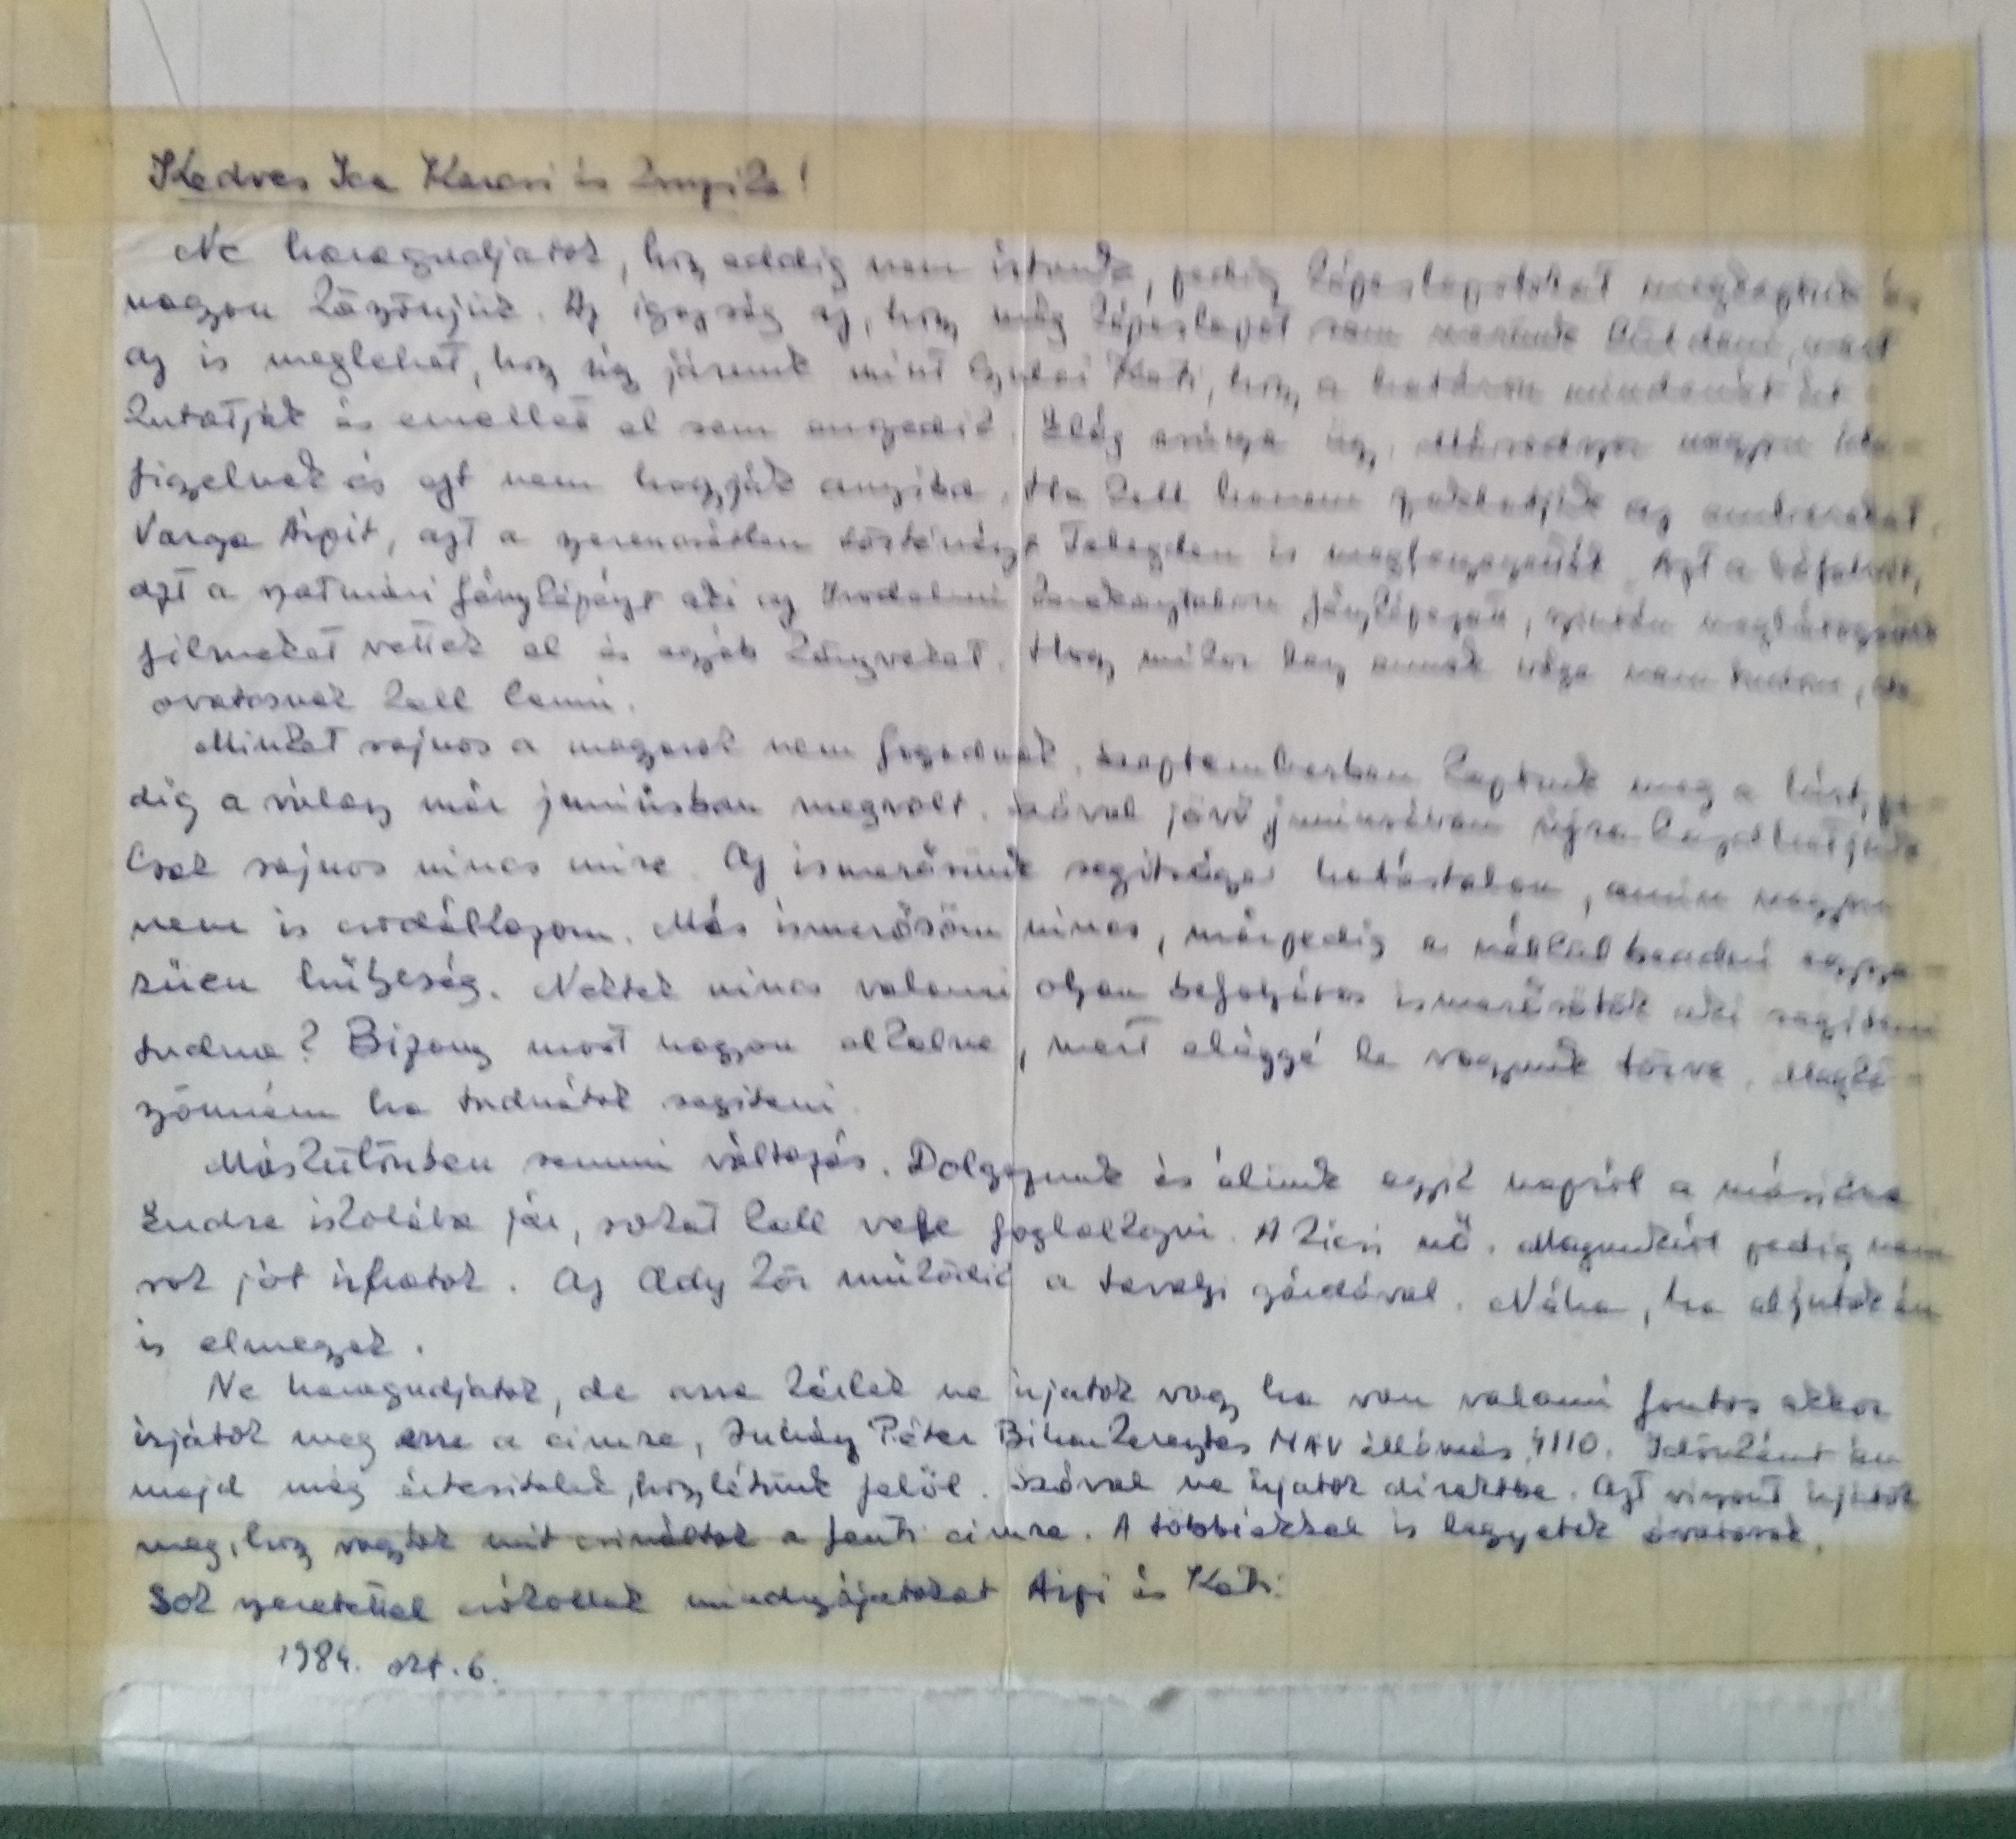 Kedves Ica Karcsi és
Ne haragudjatok, hogy eddig nem írtunk, pedig képeslapotokat megkaptuk és
nagyon köszönjük. Az igazság az, hogy még képeslapot sem merünk küldeni, mert
az is meglehet, hogy úgy járunk mint Gyulai Kati, hogy a határon mindenét át-
kutatják és emellett el sem engedik. Elég csúnya ügy. Másodszor nagyon
figyelnek és ezt nem hagyják annyiba. Ha kell hanem az embereket.
Varga Árpit, azt a szerencsétlen történészt Telegden is Azt a
azt a szatmári fényképészt aki az irodalmi fényképezett, szintén
filmeket vettek el és egyéb könyveket. Hogy mikor lesz ennek vége nem tudom, de
óvatosnak kell lenni.
Minket sajnos a magyarok nem fogadnak. Szeptemberben kaptuk meg a hírt, pe-
dig a válasz már júniusban megvolt. Szóval jövő júniusában újra kezdhetjük
Csak sajnos nincs mire. Az ismerősünk segítsége hatástalan, amin nagyon
nem is csodálkozom. Más ismerősöm nincs, márpedig a nélkül beadni egysze-
rűen hülyeség. Nektek nincs valami olyan befolyásos ismerősötök aki segíteni
tudna? Bizony most nagyon elkelne, mert eléggé le vagyunk törve. Megkö-
szönném ha tudnátok segíteni.
Máskülönben semmi változás. Dolgozunk és élünk egyik napról a másikra
Endre iskolába jár, sokat kell vele foglalkozni. A kicsi nő. Magunkról pedig nem
sok jót írhatok. Az Ady kör működik a tavalyi gárdával. Néha, ha eljutok én
is elmegyek.
Ne haragudjatok, de arra kérlek ne írjatok vagy ha van valami fontos akkor
írjátok meg erre a címre, Juhász Péter Biharkeresztes MÁV állomás, 4110. Időnként én
majd még értesítelek, hogylétünk felől. Szóval ne írjatok direktbe. Azt viszont írjátok
meg, hogy vagytok mit csináltok a fenti címre. A többiekkel is legyetek óvatosak.
Sok szeretettel csókollak mindnyájatokat Árpi és Kati.
1984. okt. 6.